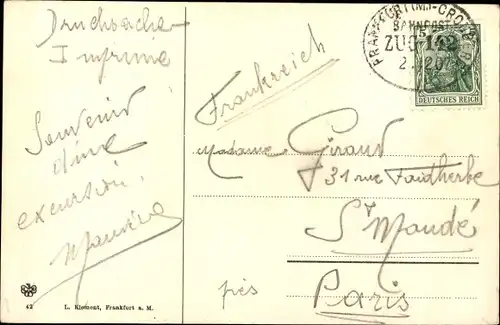 Drucksache
Imprimé
Souvenir
d'une
excursion.
Maurice
42
L. Klement, Frankfurt a. M.
FRANKFURT(M)-CRONBERG
BAHNPOST
ZUG 142
5
DEUTSCHES REICH
Frankreich
Madame Giraud
31 rue Faidherbe
St Mandé
près
Paris